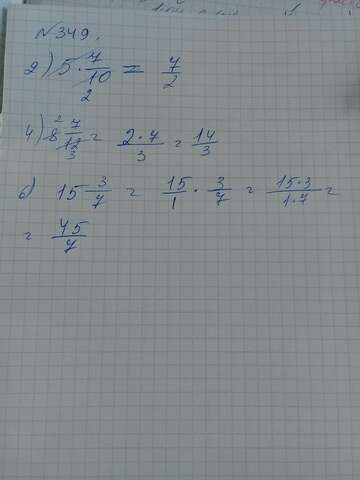 №349.
2) 5 · 7/10 = 7/2
2
4) 8 7/12 = 2·7/3 = 14/3
2 3
6) 15 3/7 = 15/1 · 3/7 = 15·3/1·7 =
= 45/7